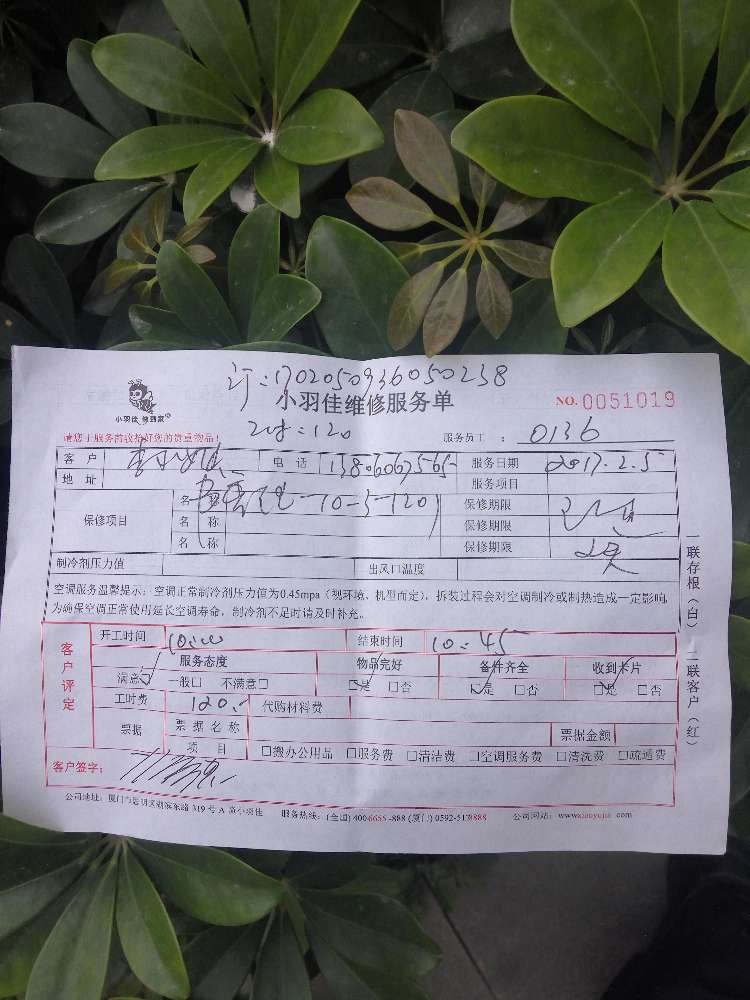 订:1702050936050238
小羽佳 修到家
小羽佳维修服务单
NO. 0051019
请您于服务前收拾好您的贵重物品!
2时:120
服务员工 : 0136
客 户
电 话 13806067565
服务日期 2017.2.5
地 址
服务项目
保修项目
名 称
-10-5-120
保修期限
名 称
保修期限
名 称
保修期限
制冷剂压力值
出风口温度
空调服务温馨提示:空调正常制冷剂压力值为0.45mpa(视环境、机型而定),拆装过程会对空调制冷或制热造成一定影响,
为确保空调正常使用延长空调寿命,制冷剂不足时请及时补充。
客户评定
开工时间 10:00
结束时间 10:45
服务态度
物品完好
备件齐全
收到卡片
满意☑ 一般□ 不满意□
☑是 □否
☑是 □否
☑是 □否
工时费 120.-
代购材料费
票据
票 据 名 称
票据金额
项 目
□搬办公用品 □服务费 □清洁费 □空调服务费 □清洗费 □疏通费
客户签字:
公司地址:厦门市思明区湖滨东路319号A 高小羽佳
服务热线:(全国)4006655-888 (厦门)0592-5138888
公司网站:www.xiaoyujia.com
一联存根(白) 二联客户(红)